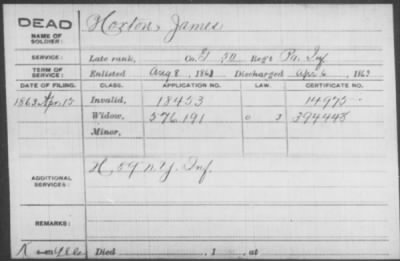 DEAD Hoxton, James
NAME OF SOLDIER:
SERVICE: Late rank, Co. Reg't Pa. Inf.
TERM OF SERVICE: Enlisted Aug 8, 1862 Discharged Apr 6, 1863
DATE OF FILING. CLASS. APPLICATION NO. LAW. CERTIFICATE NO.
1863 Apr. 17 Invalid, 18453 14975
Widow, 576191 394448
Minor,
ADDITIONAL SERVICES: H, 59 N.Y. Inf.
REMARKS:
Died , 1 at